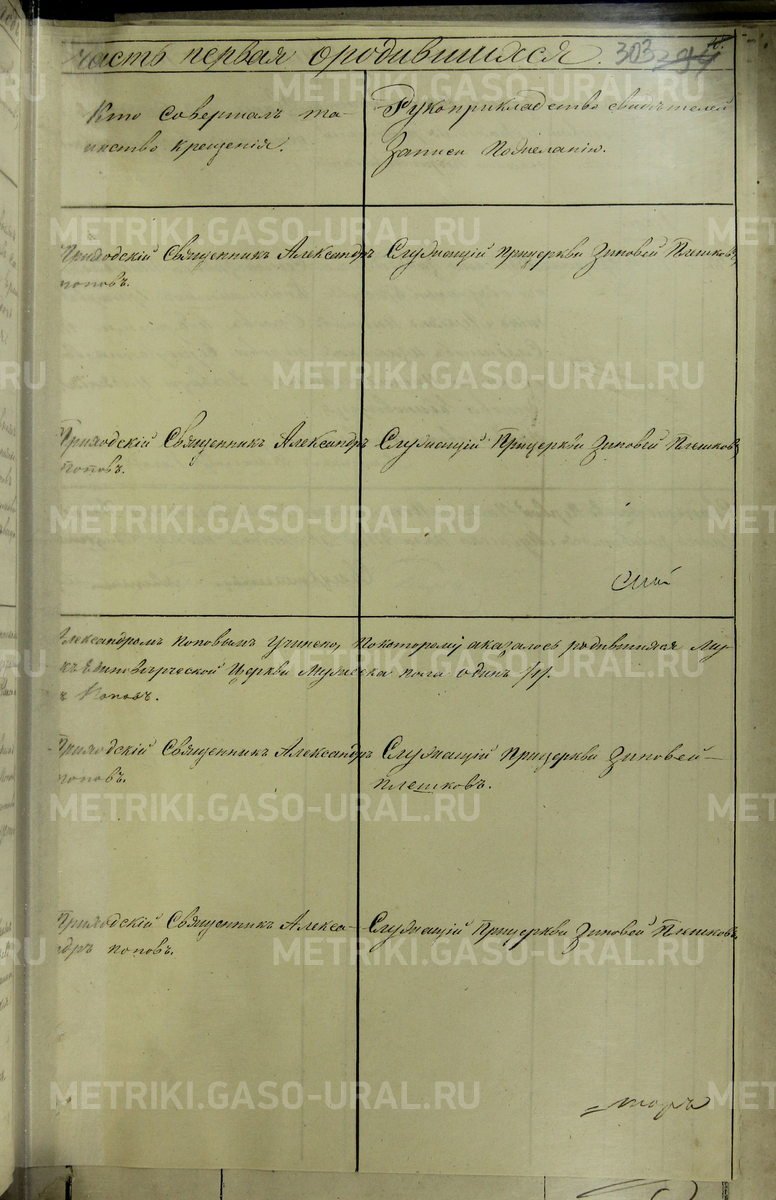 часть первая ородившихся. 303 294
Кто совершалъ та-
инство крещенія.
Рукоприкладство свидѣтелей
Записи Пожеланію.
Приходскій Священникъ Александръ
поповъ.
Служащій прицеркви Зиновей Плешковъ
Приходскій Священникъ Александръ
поповъ.
Служащій Прицеркви Зиновей Плешковъ
Александромъ поповымъ учинено, покоторому аказалось родившихся Му
къ Единоверческой Церкви Мужеска пола одинъ /1/.
Поповъ.
Приходскій Священникъ Александръ
поповъ.
Служащій Прицеркви Зиновей
плешковъ.
Приходскій Священникъ Алекса-
ндръ поповъ.
Служащій Прицеркви Зиновей Плешковъ
METRIKI.GASO-URAL.RU